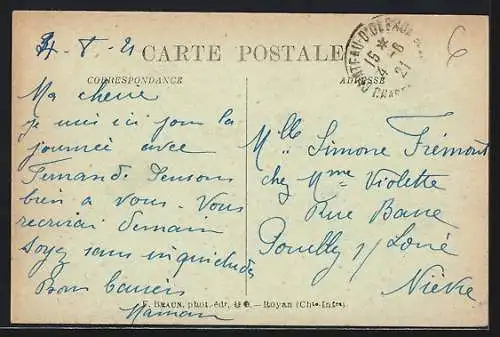 4-8-21
CARTE POSTALE
CORRESPONDANCE
ADRESSE
CHATEAU-D'OLERON
15 * -8
4 21
Ma cherie
je suis ici pour la
journée avec
Fernande Pensons
bien a vous. Vous
recrirai demain
Soyez sans inquietudes
Bons baisers
Maman
Mlle Simone Frémont
chez Mme Violette
Rue
Pouilly s/ Loire
Nièvre
F. BRAUN, phot. édr, — Royan (Chte-Infre).
6